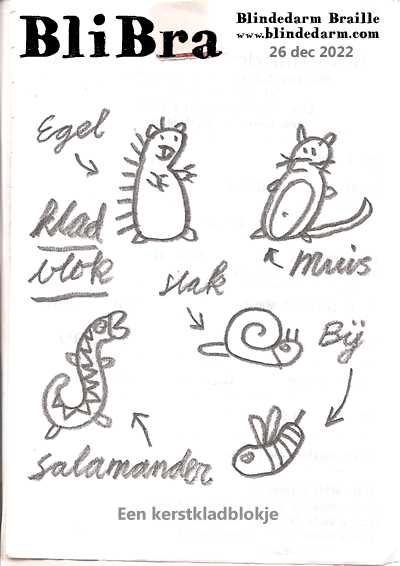 BliBra
Blindedarm Braille
www.blindedarm.com
26 dec 2022
Egel
klad
blok
slak
Muis
Bij
salamander
Een kerstkladblokje